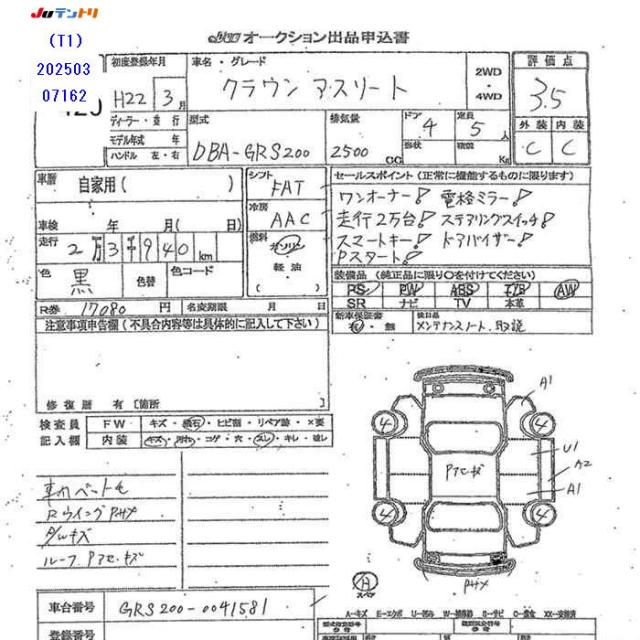 JUテントリ
オークション出品申込書
(T1)
202503
07162
初度登録年月
車名・グレード
2WD
4WD
評価点
H22 3月
クラウン アスリート
3.5
ディーラー・並行
型式
排気量
ドア 4
定員 5人
外装 内装
モデル年式 年
ハンドル 左・右
DBA-GRS200
2500 CC
形状
積載 Kg
C C
車歴
自家用( )
シフト
FAT
セールスポイント(正常に機能するものに限ります)
冷房
AAC
ワンオーナー! 電格ミラー!
車検 年 月( 日)
走行2万台! ステアリングスイッチ!
走行 2万3千940km
燃料
ガソリン
軽油
スマートキー! ドアバイザー!
Pスタート!
色 黒
色替
色コード
装備品(純正品に限り○を付けてください)
PS PW ABS エアB AW
SR ナビ TV 本革
R券 17080円
名変期限 月 日
新車保証書
有・無
後日品
メンテナンスノート、取説
注意事項申告欄(不具合内容等は具体的に記入して下さい)
修復歴 有〔箇所
検査員
記入欄
FW
キズ・飛石・ヒビ割・リペア跡・×要
内装
キズ・汚れ・コゲ・穴・スレ・キレ・破レ
A1
4 4
U1
A2
Pアセキズ
A1
4 4
ルーフ Pアセキズ
A
スペア
車台番号
GRS200-0041581
登録番号